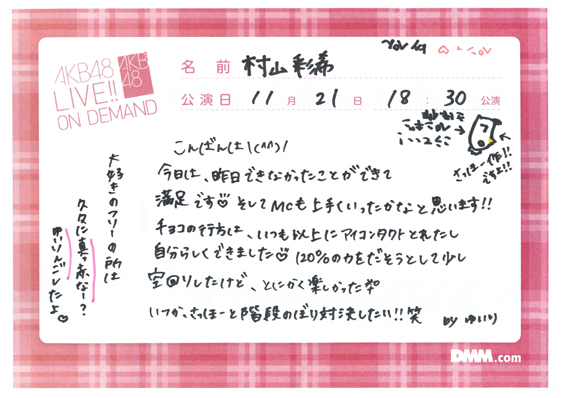 AKB48
LIVE!!
ON DEMAND
AKB
48
名 前 村山彩希
公演日 11 月 21 日 18 : 30 公演
こんばんは\(^^)/
今日は、昨日できなかったことができて
満足です そしてMCも上手くいったかなと思います!!
チョコの行方は、いつも以上にアイコンタクトとれたし
自分らしくできました 120%の力をだそうとして少し
空回りしたけど、とにかく楽しかった
いつか、さっほーと階段のぼり対決したい!!笑
by ゆいり
大好きのフリーの所は
久々に真っ赤なー?
りんごしたよ
さっほー作!!
ですよ!!
DMM.com